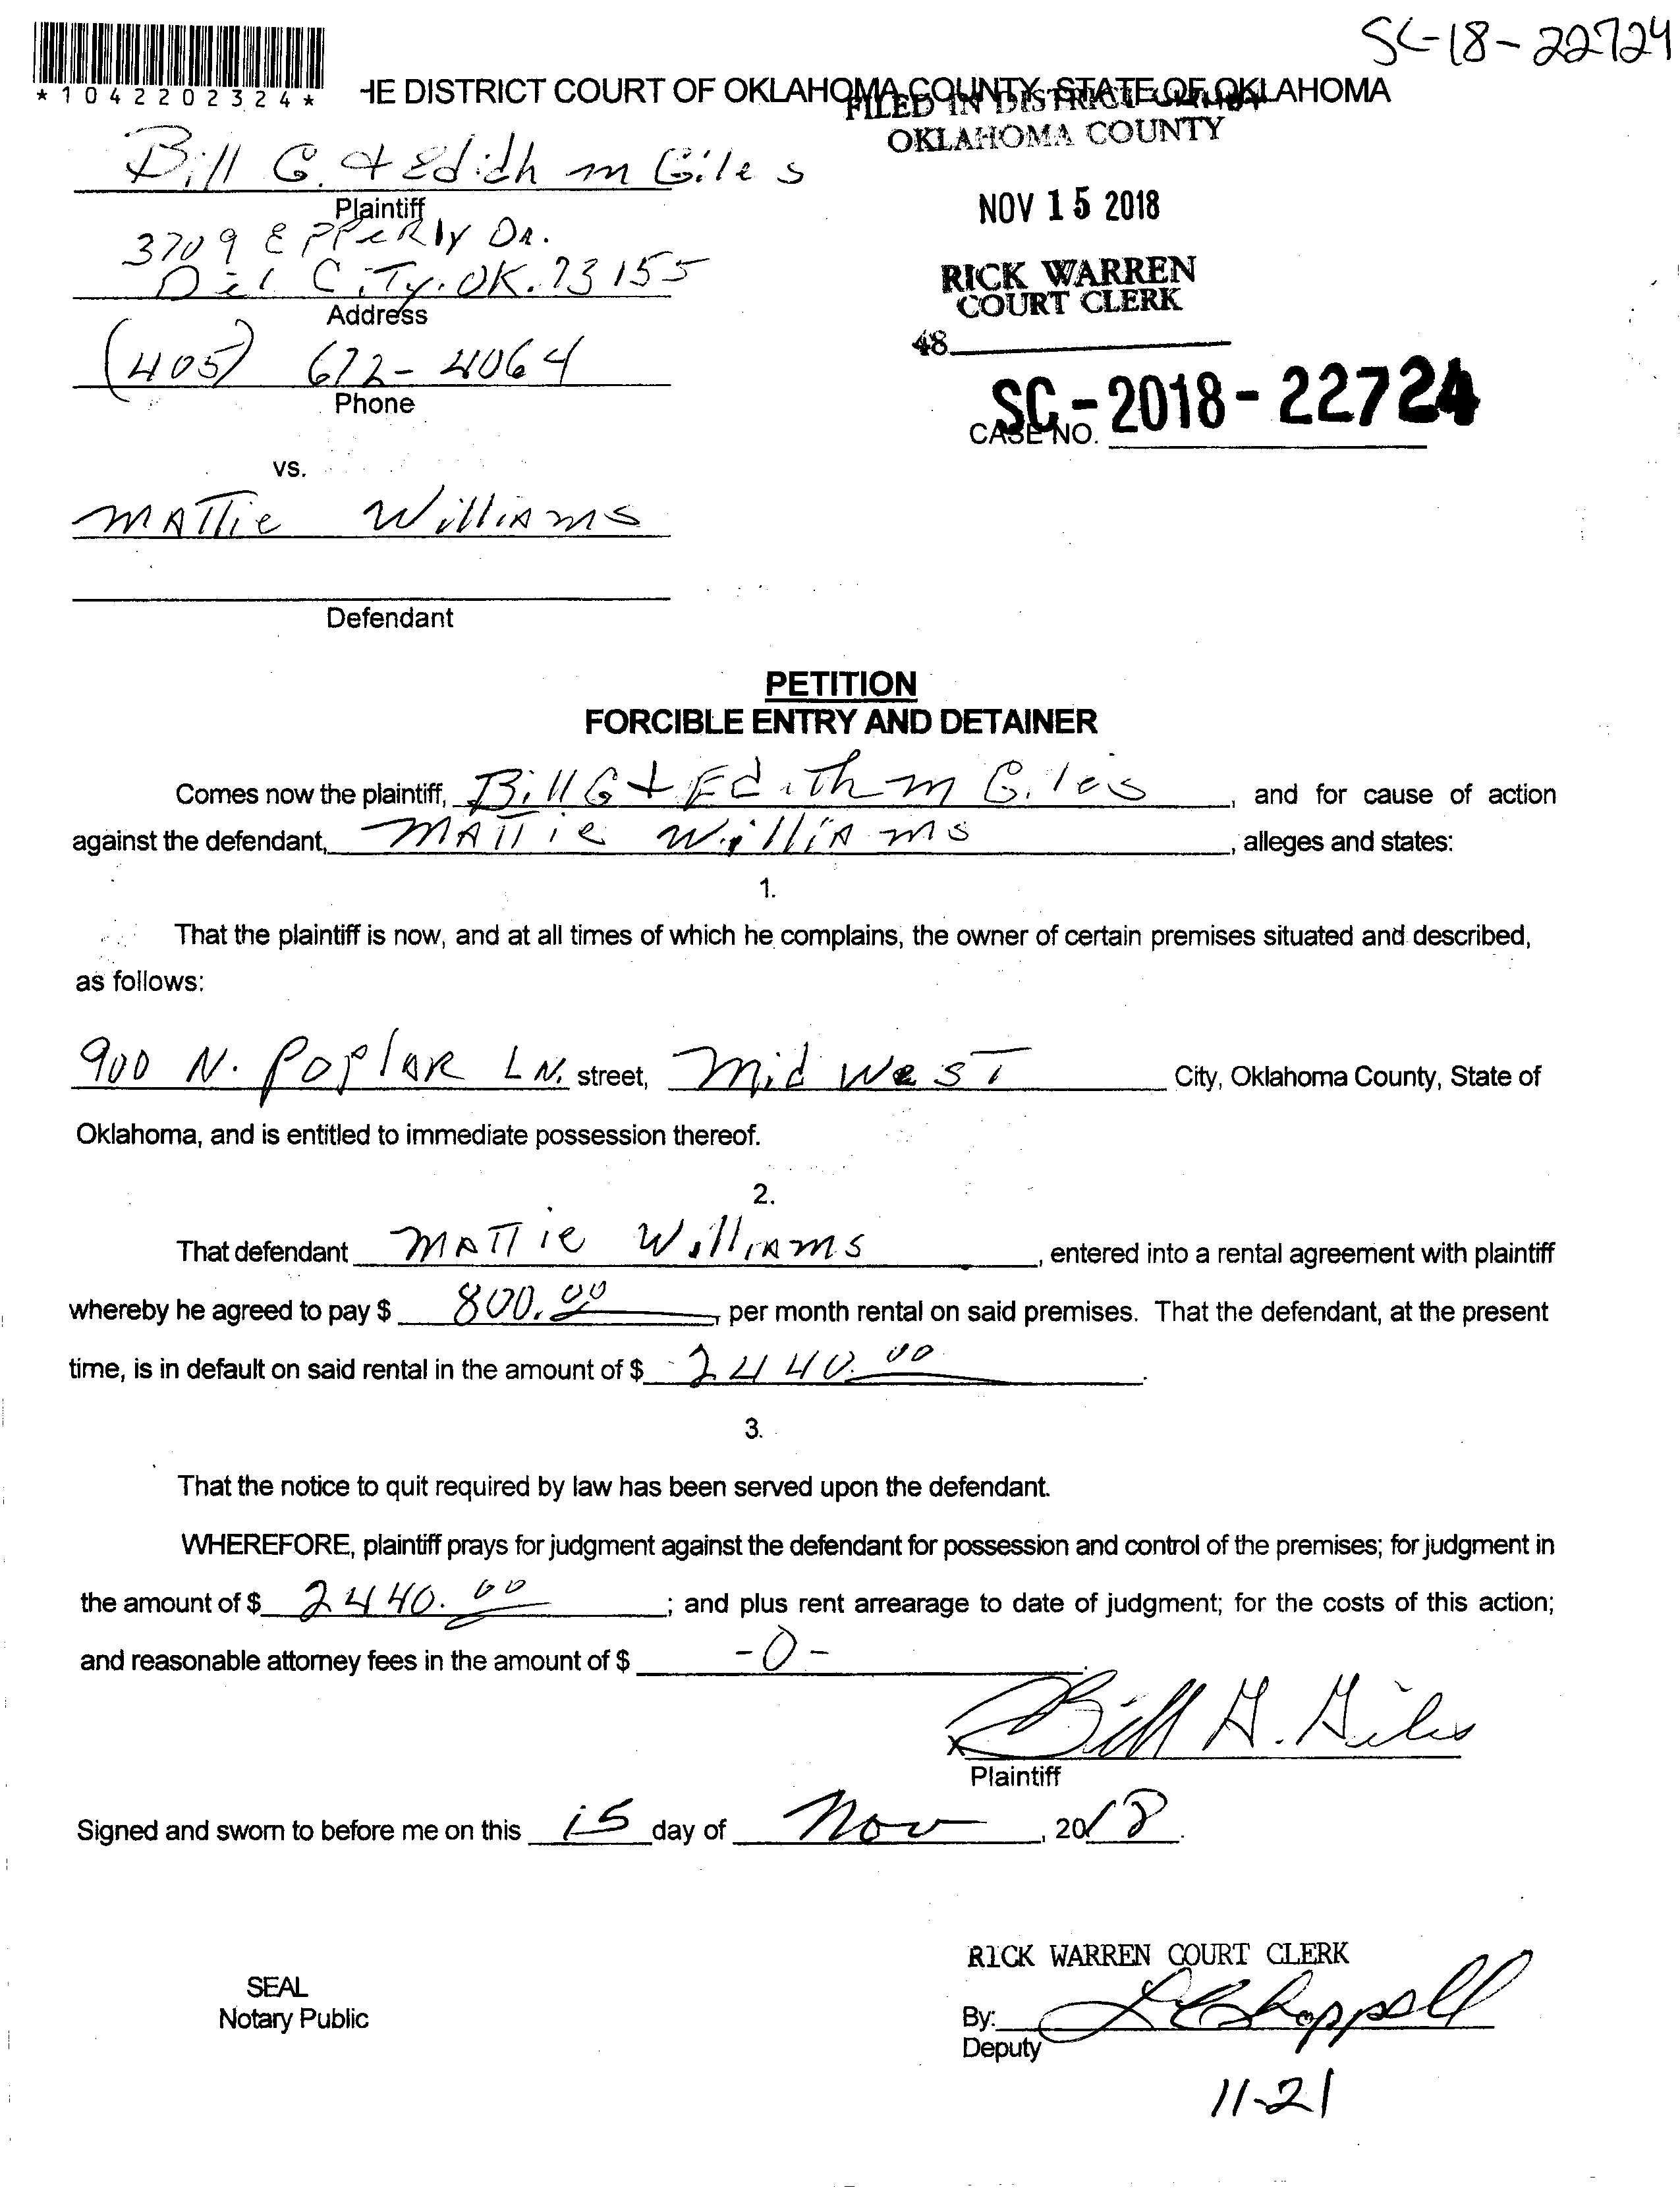 SC-18-22724
*1042202324*
HE DISTRICT COURT OF OKLAHOMA COUNTY, STATE OF OKLAHOMA
FILED IN DISTRICT COURT
OKLAHOMA COUNTY
Bill G. & Edith m Giles
Plaintiff
NOV 15 2018
3709 EPPeRly DR.
Del CiTy. OK. 73155
Address
RICK WARREN
COURT CLERK
48
(405) 672-4064
Phone
SC-2018-22724
CASE NO.
vs.
MATTie WilliAms
Defendant
PETITION
FORCIBLE ENTRY AND DETAINER
Comes now the plaintiff, Bill G & Edith m Giles, and for cause of action
against the defendant, MATTie WilliAms, alleges and states:
1.
That the plaintiff is now, and at all times of which he complains, the owner of certain premises situated and described,
as follows:
900 N. PoplAR LN. street, Mid WesT City, Oklahoma County, State of
Oklahoma, and is entitled to immediate possession thereof.
2.
That defendant MATTie WilliAms, entered into a rental agreement with plaintiff
whereby he agreed to pay $ 800.00, per month rental on said premises. That the defendant, at the present
time, is in default on said rental in the amount of $ 2440.00.
3.
That the notice to quit required by law has been served upon the defendant.
WHEREFORE, plaintiff prays for judgment against the defendant for possession and control of the premises; for judgment in
the amount of $ 2440.00; and plus rent arrearage to date of judgment; for the costs of this action;
and reasonable attorney fees in the amount of $ -0-.
x Bill G. Giles
Plaintiff
Signed and sworn to before me on this 15 day of Nov, 2018.
RICK WARREN COURT CLERK
SEAL
Notary Public
By: L Chappell
Deputy
11-21